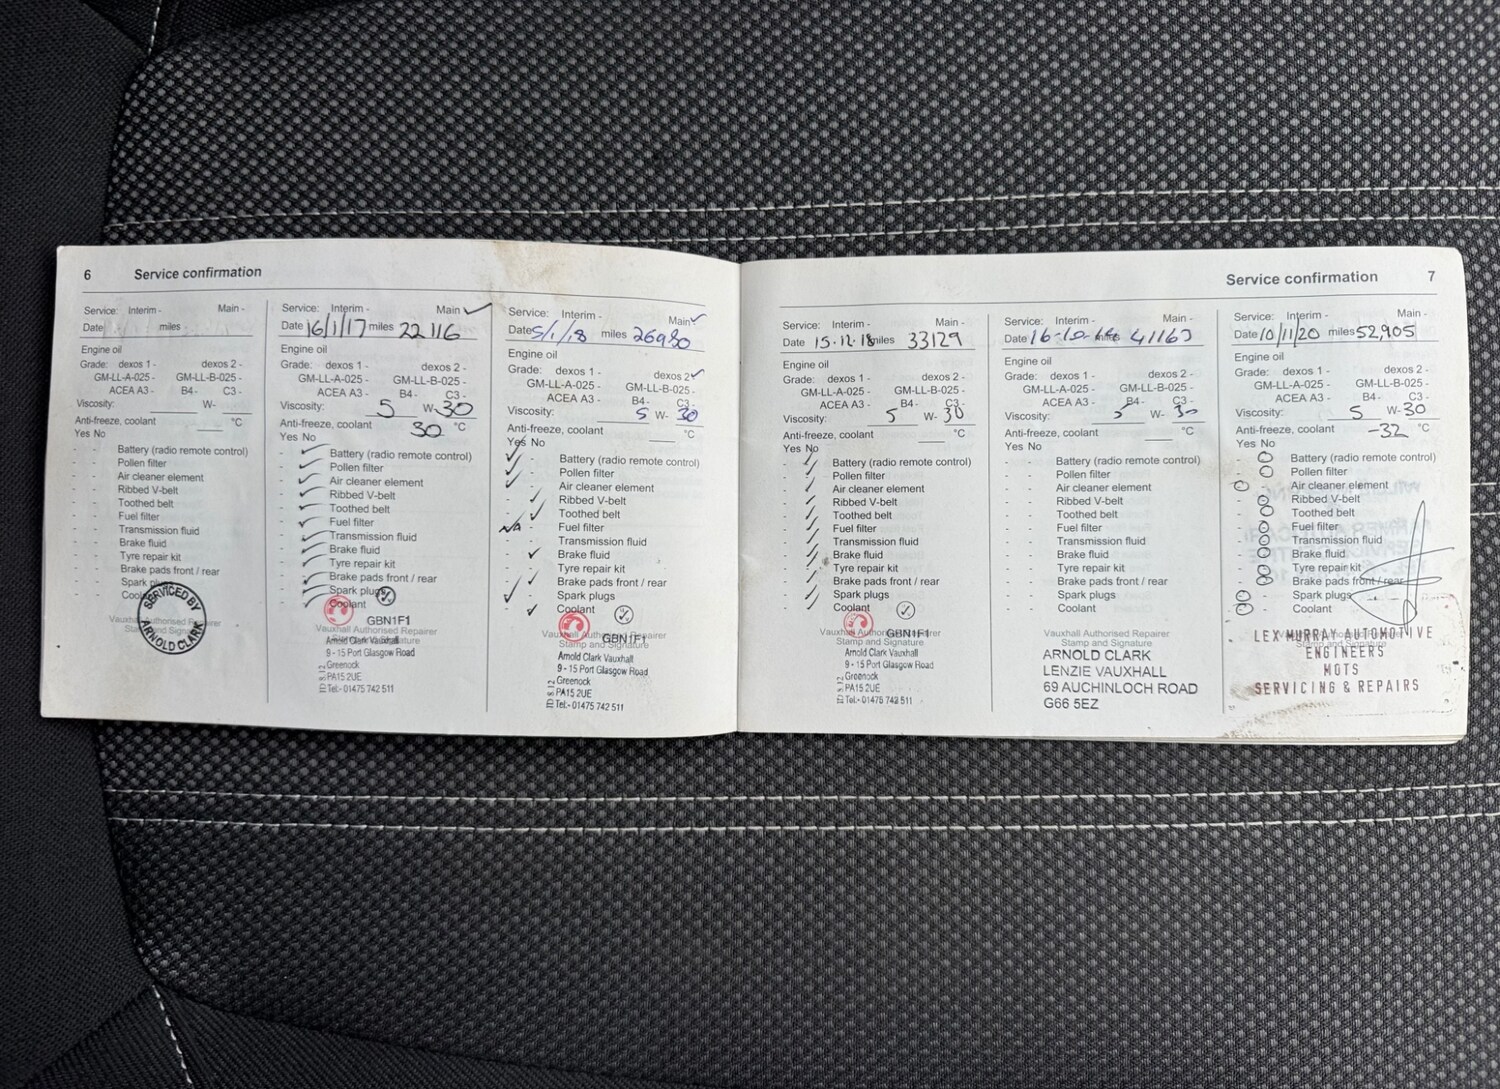 6 Service confirmation
Service: Interim - Main -
Date miles
Engine oil
Grade: dexos 1 - dexos 2 -
GM-LL-A-025 - GM-LL-B-025 -
ACEA A3 - B4 - C3 -
Viscosity: W-
Anti-freeze, coolant °C
Yes No
- - Battery (radio remote control)
- - Pollen filter
- - Air cleaner element
- - Ribbed V-belt
- - Toothed belt
- - Fuel filter
- - Transmission fluid
- - Brake fluid
- - Tyre repair kit
- - Brake pads front / rear
- - Spark plugs
- - Coolant
SERVICED BY ARNOLD CLARK
Service: Interim - Main ✓
Date 16/1/17 miles 22116
Engine oil
Grade: dexos 1 - dexos 2 -
GM-LL-A-025 - GM-LL-B-025 -
ACEA A3 - B4 - C3 -
Viscosity: 5 W- 30
Anti-freeze, coolant 30 °C
Yes No
Battery (radio remote control)
Pollen filter
Air cleaner element
Ribbed V-belt
Toothed belt
Fuel filter
Transmission fluid
Brake fluid
Tyre repair kit
Brake pads front / rear
Spark plugs
Coolant
GBN1F1
Vauxhall Authorised Repairer
Stamp and Signature
Arnold Clark Vauxhall
9 - 15 Port Glasgow Road
Greenock
PA15 2UE
Tel:- 01475 742 511
Service: Interim - Main ✓
Date 5/1/18 miles 26980
Engine oil
Grade: dexos 1 - dexos 2 ✓
GM-LL-A-025 - GM-LL-B-025 -
ACEA A3 - B4 - C3 -
Viscosity: 5 W- 30
Anti-freeze, coolant °C
Yes No
Battery (radio remote control)
Pollen filter
Air cleaner element
Ribbed V-belt
Toothed belt
N/A Fuel filter
Transmission fluid
Brake fluid
Tyre repair kit
Brake pads front / rear
Spark plugs
Coolant
GBN1F1
Vauxhall Authorised Repairer
Stamp and Signature
Arnold Clark Vauxhall
9 - 15 Port Glasgow Road
Greenock
PA15 2UE
Tel:- 01475 742 511
Service confirmation 7
Service: Interim - Main -
Date 15.12.18 miles 33129
Engine oil
Grade: dexos 1 - dexos 2 -
GM-LL-A-025 - GM-LL-B-025 -
ACEA A3 - B4 - C3 -
Viscosity: 5 W- 30
Anti-freeze, coolant °C
Yes No
Battery (radio remote control)
Pollen filter
Air cleaner element
Ribbed V-belt
Toothed belt
Fuel filter
Transmission fluid
Brake fluid
Tyre repair kit
Brake pads front / rear
Spark plugs
Coolant
GBN1F1
Vauxhall Authorised Repairer
Stamp and Signature
Arnold Clark Vauxhall
9 - 15 Port Glasgow Road
Greenock
PA15 2UE
Tel:- 01475 742 511
Service: Interim - Main -
Date 16-10- miles 41163
Engine oil
Grade: dexos 1 - dexos 2 -
GM-LL-A-025 - GM-LL-B-025 -
ACEA A3 - B4 - C3 -
Viscosity: 5 W- 30
Anti-freeze, coolant °C
Yes No
- - Battery (radio remote control)
- - Pollen filter
- - Air cleaner element
- - Ribbed V-belt
- - Toothed belt
- - Fuel filter
- - Transmission fluid
- - Brake fluid
- - Tyre repair kit
- - Brake pads front / rear
- - Spark plugs
- - Coolant
Vauxhall Authorised Repairer
Stamp and Signature
ARNOLD CLARK
LENZIE VAUXHALL
69 AUCHINLOCH ROAD
G66 5EZ
Service: Interim - Main -
Date 10/11/20 miles 52,905
Engine oil
Grade: dexos 1 - dexos 2 -
GM-LL-A-025 - GM-LL-B-025 -
ACEA A3 - B4 - C3 -
Viscosity: 5 W- 30
Anti-freeze, coolant -32 °C
Yes No
Battery (radio remote control)
Pollen filter
Air cleaner element
Ribbed V-belt
Toothed belt
Fuel filter
Transmission fluid
Brake fluid
Tyre repair kit
Brake pads front / rear
Spark plugs
Coolant
LEX MURRAY AUTOMOTIVE
ENGINEERS
MOTS
SERVICING & REPAIRS